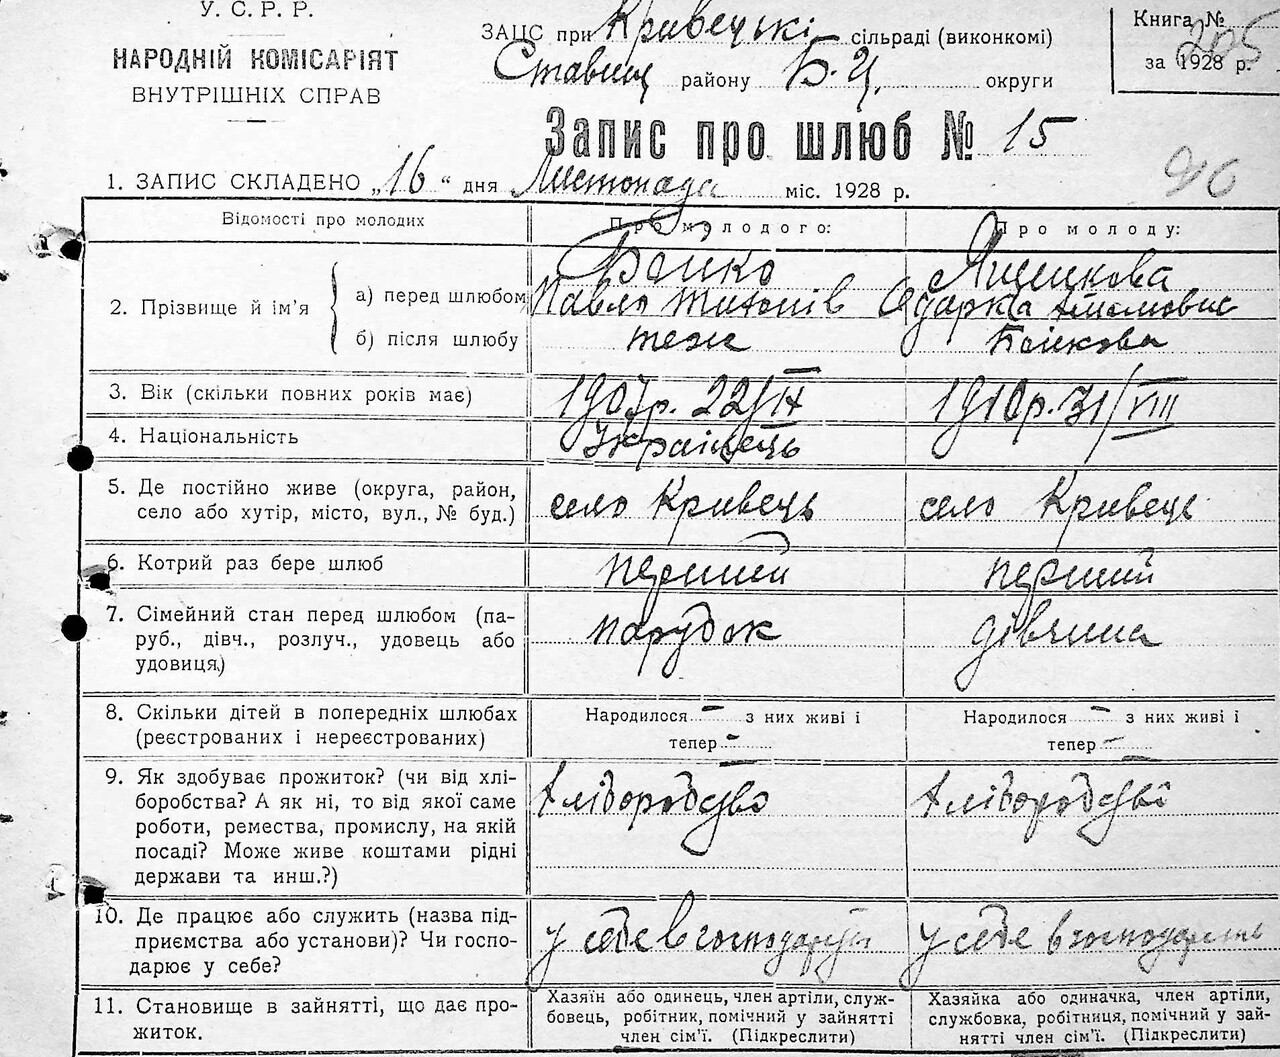 У. С. Р. Р.
НАРОДНІЙ КОМІСАРІЯТ
ВНУТРІШНІХ СПРАВ
ЗАГС при Кривецькі сільраді (виконкомі)
Ставищ району Б.Ц. округи
Книга №
за 1928 р.
205
Запис про шлюб № 15
96
1. ЗАПИС СКЛАДЕНО „16“ дня Листопада міс. 1928 р.
Відомості про молодих
Про молодого:
Про молоду:
2. Прізвище й ім'я
а) перед шлюбом
Бойко
Павло
Одарка
б) після шлюбу
теж
Бойкова
3. Вік (скільки повних років має)
1907р. 22/IX
1910р. 31/VIII
4. Національність
Українець
5. Де постійно живе (округа, район,
село або хутір, місто, вул., № буд.)
село Кривець
село Кривець
6. Котрий раз бере шлюб
перший
перший
7. Сімейний стан перед шлюбом (па-
руб., дівч., розлуч., удовець або
удовиця.)
парубок
дівчина
8. Скільки дітей в попередніх шлюбах
(реєстрованих і нереєстрованих)
Народилося — з них живі і
тепер —
Народилося — з них живі і
тепер —
9. Як здобуває прожиток? (чи від хлі-
боробства? А як ні, то від якої саме
роботи, ремества, промислу, на якій
посаді? Може живе коштами рідні
держави та инш.?)
хліборобство
хліборобство
10. Де працює або служить (назва під-
приємства або установи)? Чи госпо-
дарює у себе?
у себе в
у себе в
11. Становище в зайнятті, що дає про-
житок.
Хазяїн або одинець, член артілі, служ-
бовець, робітник, помічний у зайнятті
член сім'ї. (Підкреслити)
Хазяйка або одиначка, член артілі,
службовка, робітниця, помічний у зай-
нятті член сім'ї. (Підкреслити)